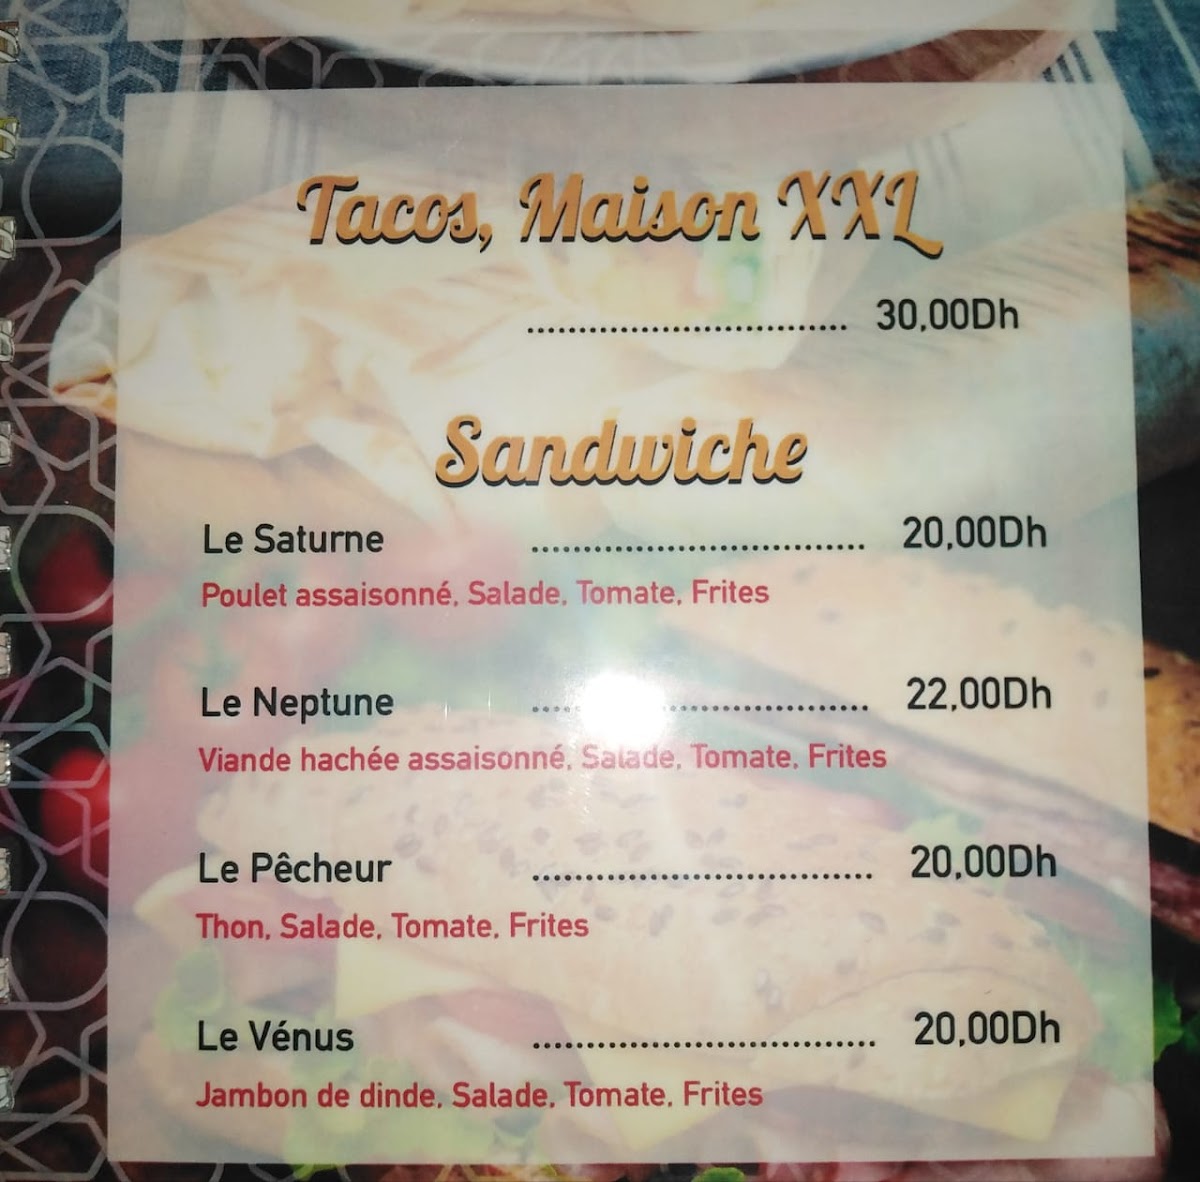 Tacos, Maison XXL
............................... 30,00Dh
Sandwiche
Le Saturne ................................ 20,00Dh
Poulet assaisonné, Salade, Tomate, Frites
Le Neptune ................................ 22,00Dh
Viande hachée assaisonné, Salade, Tomate, Frites
Le Pêcheur ................................. 20,00Dh
Thon, Salade, Tomate, Frites
Le Vénus ................................. 20,00Dh
Jambon de dinde, Salade, Tomate, Frites